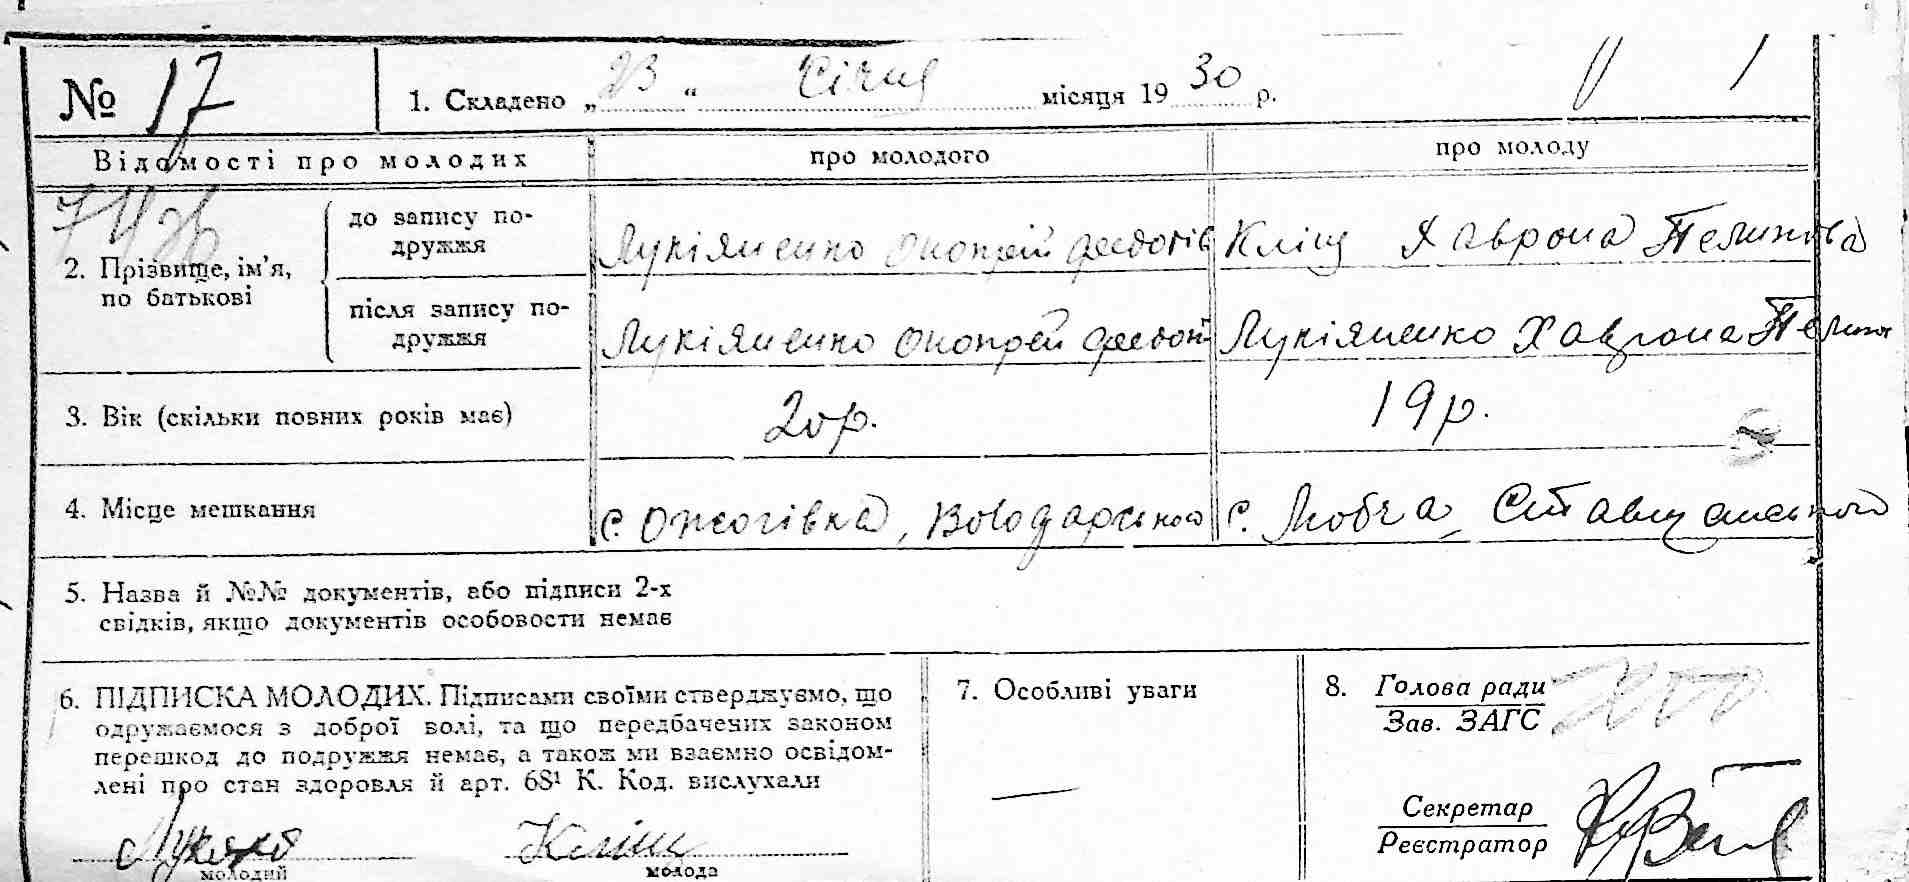 № 17
1. Складено „ 23 “ Січня місяця 19 30 р.
Відомості про молодих
про молодого
про молоду
2. Прізвище, ім'я, по батькові
до запису по-
дружжя
Лукіяненко Онопрей Федотів
Кліщ Хаврона Пелипова
після запису по-
дружжя
Лукіяненко Онопрей Федот
Лукіяненко Хаврона Пелип
3. Вік (скільки повних років має)
20 р.
19 р.
4. Місце мешкання
с. Ожогівка, Володарського
с. Любча, Ставищанського
5. Назва й №№ документів, або підписи 2-х
свідків, якщо документів особовости немає
6. ПІДПИСКА МОЛОДИХ. Підписами своїми стверджуємо, що
одружаємося з доброї волі, та що передбачених законом
перешкод до подружжя немає, а також ми взаємно освідом-
лені про стан здоровля й арт. 68¹ К. Код. вислухали
Кліщ
молодий
молода
7. Особливі уваги
—
8. Голова ради
Зав. ЗАГС
Секретар
Реєстратор